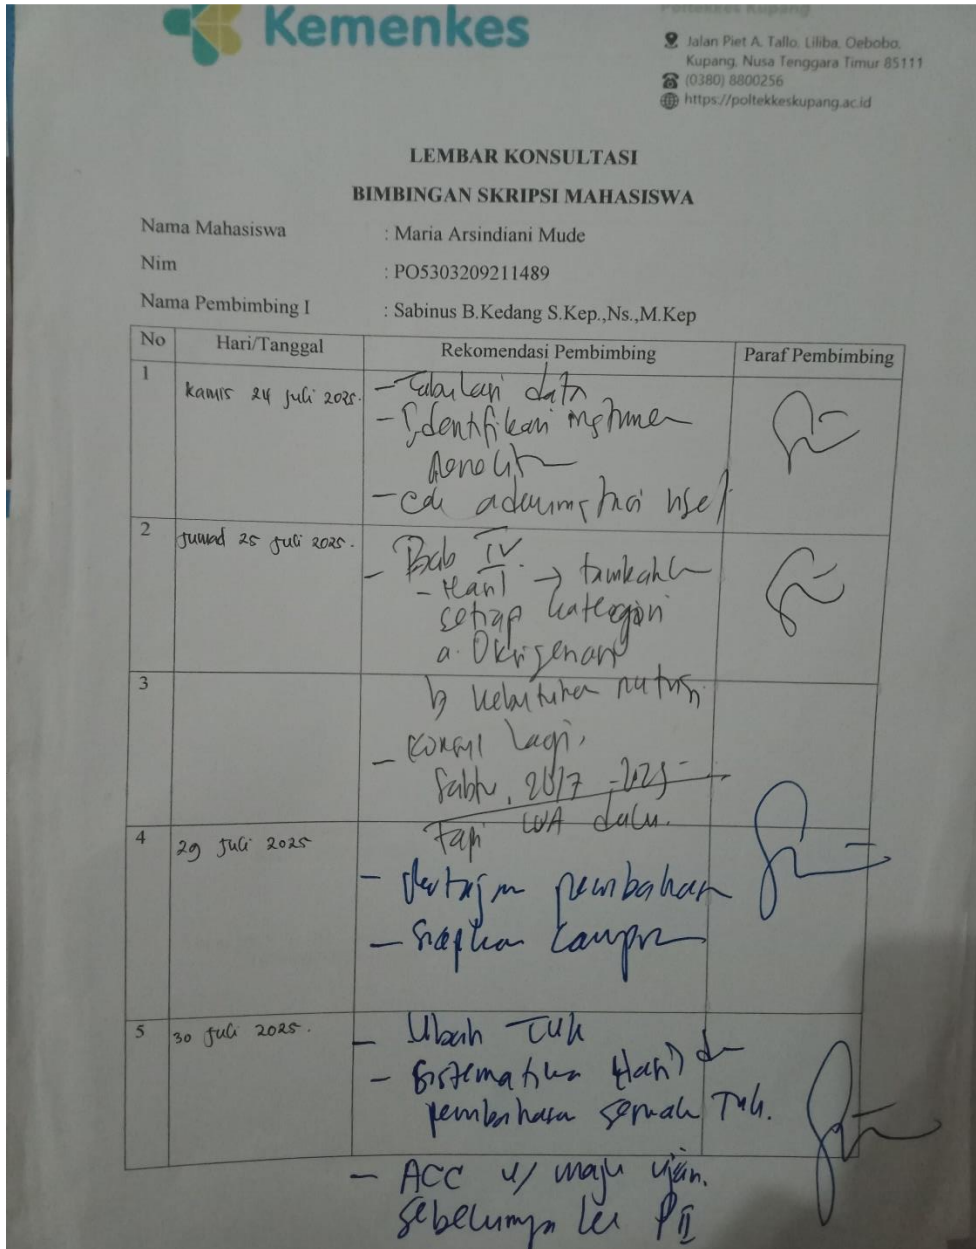 Kemenkes
Poltekkes Kupang
Jalan Piet A. Tallo, Liliba, Oebobo,
Kupang, Nusa Tenggara Timur 85111
(0380) 8800256
https://poltekkeskupang.ac.id
LEMBAR KONSULTASI
BIMBINGAN SKRIPSI MAHASISWA
Nama Mahasiswa : Maria Arsindiani Mude
Nim : PO5303209211489
Nama Pembimbing I : Sabinus B.Kedang S.Kep.,Ns.,M.Kep
No Hari/Tanggal Rekomendasi Pembimbing Paraf Pembimbing
1 Kamis 24 Juli 2025. - Tabulasi data
- Identifikasi
-
2 25 Juli 2025. - Bab IV.
- Hasil →
setiap kategori
a.
3 b kebutuhan nutrisi
- Konsul lagi,
Sabtu,
Tapi WA dulu.
4 29 Juli 2025
- pembahasan
- Siapkan
5 30 Juli 2025. - Ubah Tuk
- Sistematika Hasil dan
pembahasan sesuai Tuk.
- ACC u/ maju ujian.
sebelumnya ke P II